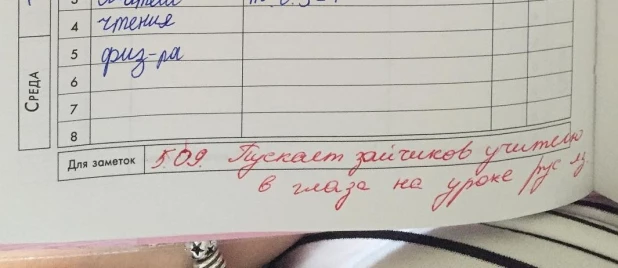 3
4 чтения
5 физ-ра
6
7
8
СРЕДА
Для заметок 5.09. Пускает зайчиков учителю
в глаза на уроке рус яз